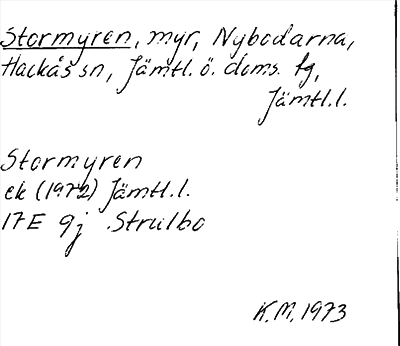 Stormyren, myr, Nybodarna,
Hackås sn, Jämtl. ö. doms. tg,
Jämtl.l.
Stormyren
ek (1972) Jämtl.l.
17E 9j Strulbo
K.M. 1973